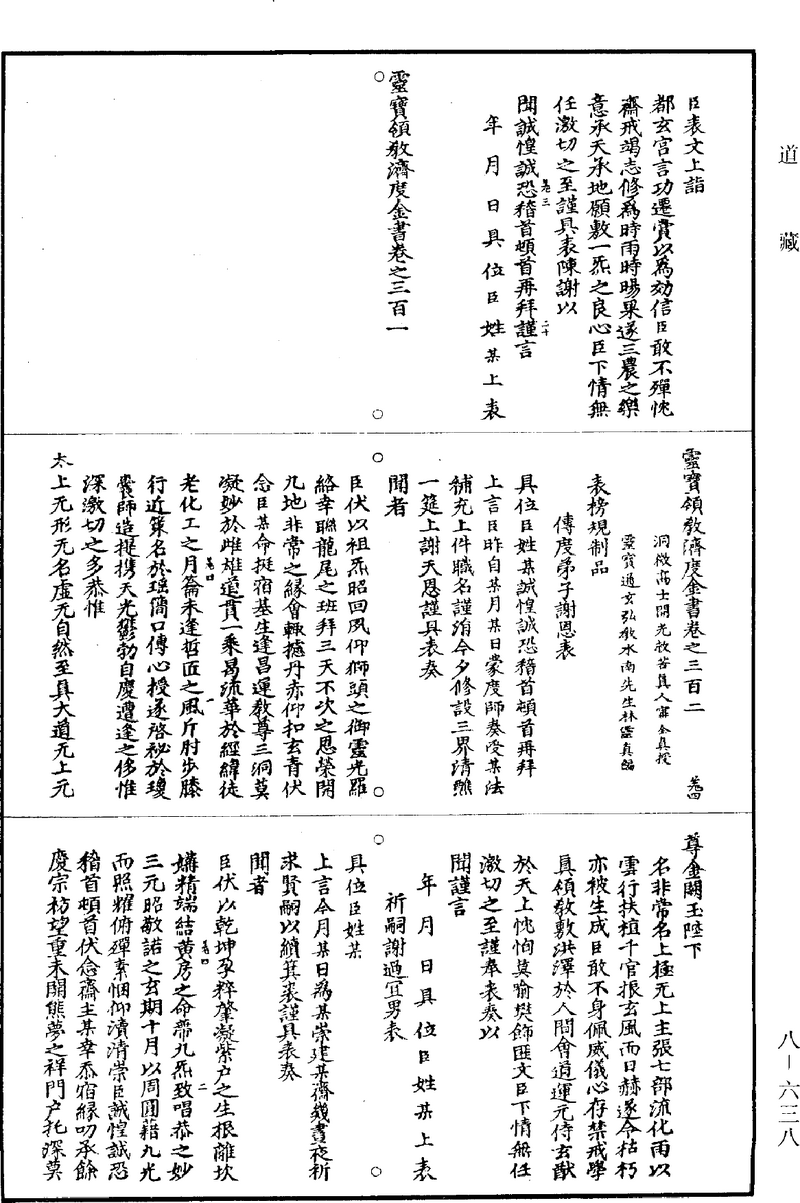 道藏
臣表文上詣
都玄宮言功遷賞以為效信臣敢不殫忱
齋戒竭志修為時雨時暘果遂三農之樂
意承天承地願敷一炁之良心臣下情無
任激切之至謹具表陳謝以
聞誠惶誠恐稽首頓首再拜謹言
卷三
二十
年月日具位臣姓某上表
靈寶領教濟度金書卷之三百一
靈寶領教濟度金書卷之三百二
卷四
洞微高士開光救苦真人甯全真授
靈寶通玄弘教水南先生林靈真編
表榜規制品
傳度弟子謝恩表
具位臣姓某誠惶誠恐稽首頓首再拜
上言臣昨自某月某日蒙度師奏受某法
補充上件職名謹消今夕修設三界清醮
一筵上謝天恩謹具表奏
聞者
臣伏以祖炁昭回夙仰獅頭之御靈光羅
絡幸聯龍尾之班拜三天不次之恩榮開
九地非常之緣會輒攄丹赤仰扣玄青伏
念臣某命挺宿基生逢昌運教尊三洞莫
凝妙於雌雄道貫一乘曷流華於經緯徒
老化工之月籥未逢哲匠之風斤肘步膝
卷四
一
行近策名於瑶簡口傳心授遂啓祕於瓊
囊師造提携天光鬱勃自慶遭逢之侈惟
深激切之多恭惟
太上无形无名虛无自然至真大道元上元
尊金闕玉陛下
名非常名上極无上主張七部流化雨以
雲行扶植千官振玄風而日赫遂令枯朽
亦被生成臣敢不身佩威儀心存禁戒學
真領教敷洪澤於人間會道運元侍玄猷
於天上忱恂莫喻奬飾匪文臣下情無任
激切之至謹奉表奏以
聞謹言
年月日具位臣姓某上表
祈嗣謝過宜男表
具位臣姓某
上言今月某日為某崇建某齋幾晝夜祈
求賢嗣以續箕裘謹具表奏
聞者
臣伏以乾坤孕粹肇凝紫户之生根離坎
媾精端結黄房之命蒂九炁致唱恭之妙
卷四
二
三元昭敬諾之玄期十月以周圓藉九光
而照耀俯殫素悃仰瀆清崇臣誠惶誠恐
稽首頓首伏念齋主某幸忝宿緣叨承餘
慶宗祊望重未開熊夢之祥門户托深莫
八－六三八